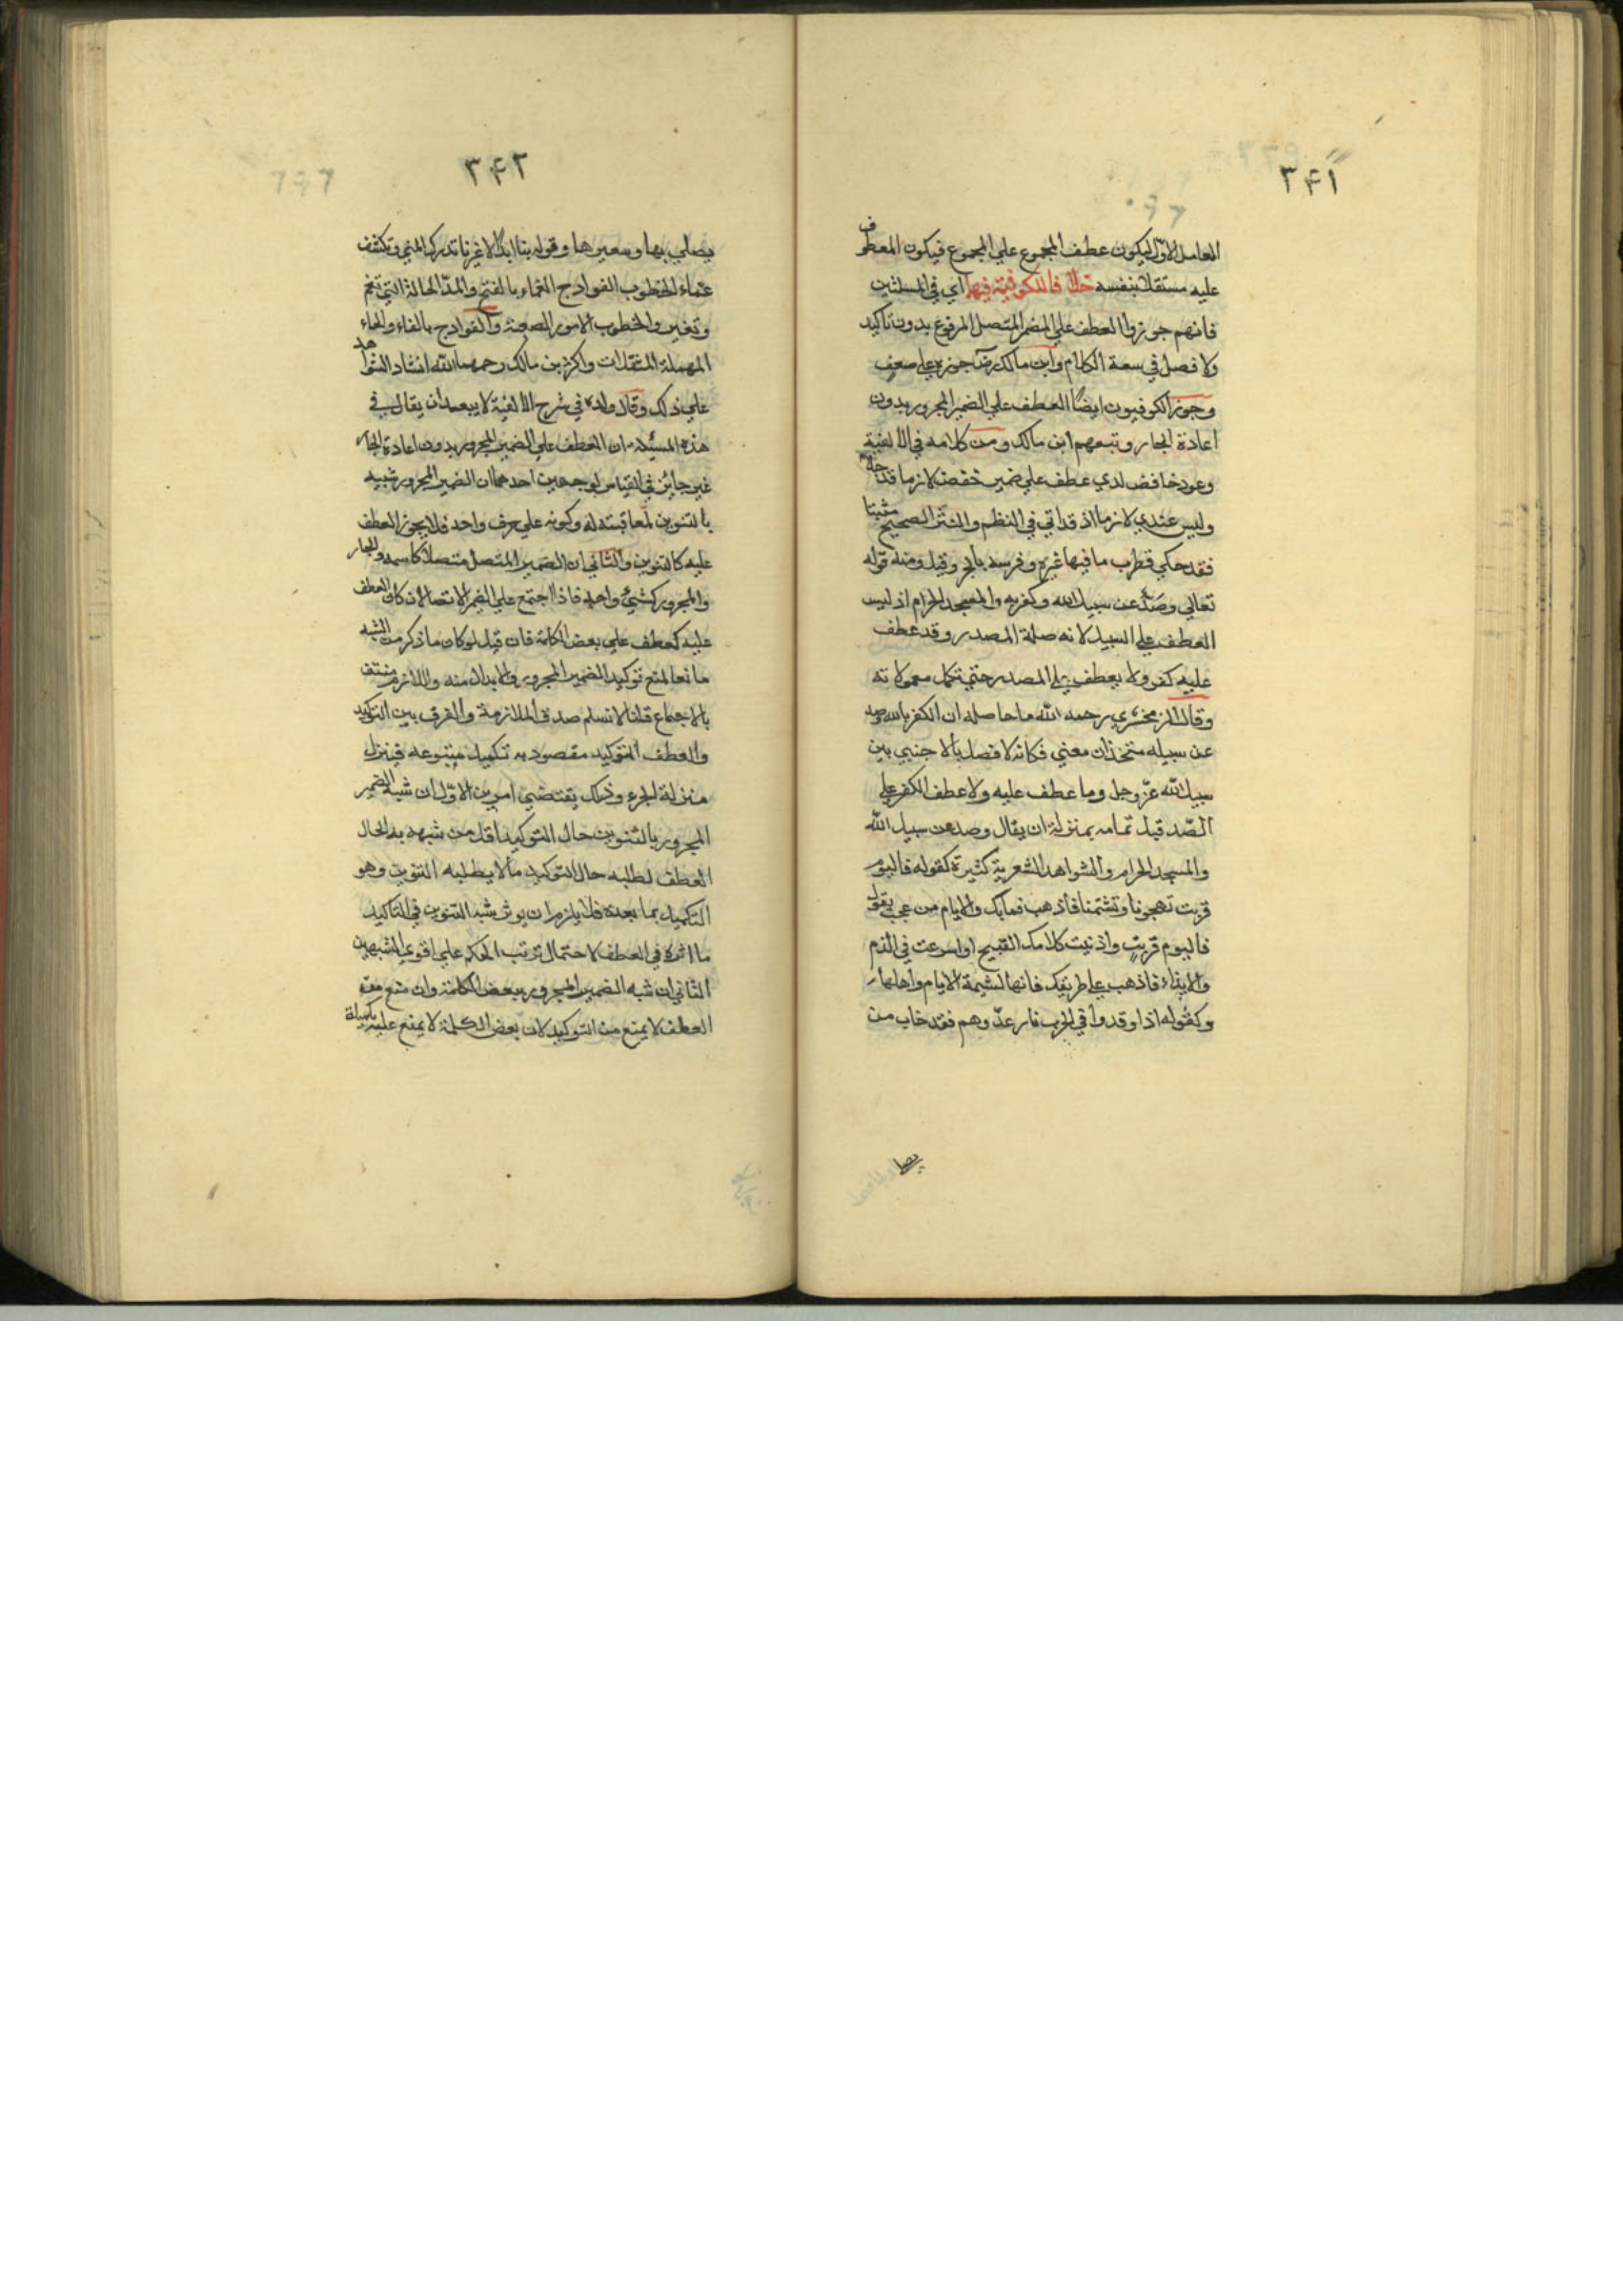 ٣٤١
العامل الاول ليكون عطف المجموع علي المجموع فيكون المعطوف
عليه مستقلا بنفسه خلافا للكوفية فيهما اي في المسئلتين
فانهم جوزوا العطف علي المضمر المتصل المرفوع بدون تاكيد
ولا فصل في سعة الكلام وابن مالك جوزه علي ضعف
وجوز الكوفيون ايضا العطف علي الضمير المجرور بدون
اعادة الجار وتبعهم ابن مالك ومن كلامه في الالفية
وعود خافض لدي عطف علي ضمير خفض لازما قد جعلا
وليس عندي لازما اذ قد اتي في النظم والنثر الصحيح مثبتا
فقد حكي قطرب ما فيها غيره وفرسه بالجر وقيل ومنه قوله
تعالي وصد عن سبيل الله وكفر به والمسجد الحرام اذ ليس
العطف علي السبيل لانه صلة المصدر وقد عطف
عليه كفر ولا يعطف علي المصدر حتي تكمل معمولاته
وقال الزمخشري رحمه الله ما حاصله ان الكفر بالله وصد
عن سبيله متحدان معني فكانه لا فصل بالاجنبي بين
سبيل الله عز وجل وما عطف عليه ولا عطف الكفر علي
الصد قبل تمامه بمنزلة ان يقال وصد عن سبيل الله
والمسجد الحرام والشواهد الشعرية كثيرة كقوله فاليوم
قربت تهجونا وتشتمنا فاذهب فما بك والايام من عجب يقول
فاليوم قربت واذنيت كلامك القبيح او اسرعت في الذم
والايذاء فاذهب علي طريقك فانها لشيمة الايام واهلها
وكقوله اذا اوقدوا في الحرب نار عدوهم فقد خاب من
يصلي
٣٤٢
يصلي بها وسعيرها وقوله بنا ابدا لا غيرنا تدرك المني وتكشف
غماء الخطوب الفوادح الغماء بالفتح والمد الحالة التي تغم
والخطوب الامور الصعبة والفوادح بالفاء والحاء
المهملة المثقلات واكثر بن مالك رحمهما الله انشاد الشواهد
علي ذلك وقال ولده في شرح الالفية لا يبعد ان يقال في
هذه المسئلة ان العطف علي الضمير المجرور بدون اعادة الجار
غير جائز في القياس لوجهين احدهما ان الضمير المجرور شبيه
بالتنوين لمعاقبته له وكونه علي حرف واحد فلا يجوز العطف
عليه كالتنوين والثاني ان الضمير المتصل متصلا كاسمه والجار
والمجرور كشيء واحد فاذا اجتمع علي الضمير الاتصالان كان العطف
عليه كعطف علي بعض الكلمة فان قيل لو كان ما ذكر من الشبه
مانعا لمنع توكيد الضمير المجرور والابدال منه واللازم منتف
بالاجماع قلنا لا نسلم صدق الملازمة والفرق بين التوكيد
والعطف التوكيد مقصود به تكميل متبوعه فينزل
منزلة الجزء وذلك يقتضي امرين الاول ان شبه الضمير
المجرور بالتنوين حال التوكيد اقل من شبهه به حال
العطف لطلبه حال التوكيد ما لا يطلبه التنوين وهو
التكميل بما بعده فلا يلزم ان يوثر شبه التنوين في التاكيد
ما اثره في العطف لاحتمال ترتب الحكم علي اقوي الشبهين
الثاني ان شبه الضمير المجرور ببعض الكلمة وان منع معه
العطف لا يمنع من التوكيد لان بعض الكلمة لا يمنع عليه تكميله